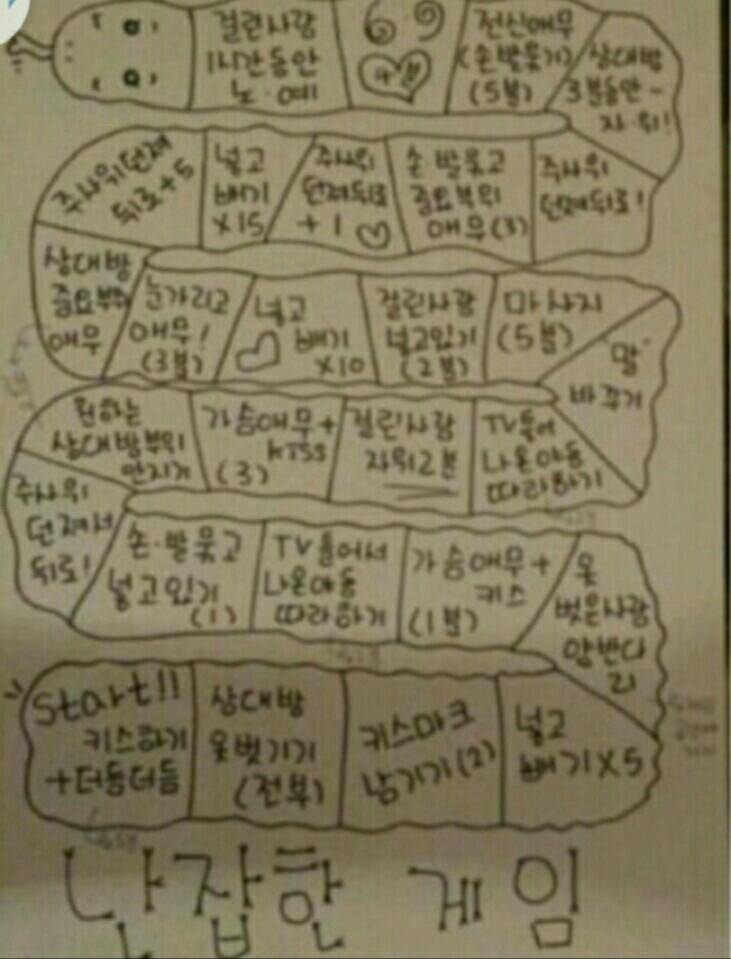 걸린사람
1시간동안
노·예
69
전신애무
(손발묶기)
(5분)
상대방
3분동안-
자·위!
주사위던져
뒤로+5
넣고
빼기
X15
주사위
던져뒤로
+1♡
손·발묶고
중요부위
애무(3)
주사위
던져뒤로!
상대방
중요부위
애무
눈가리고
애무!
(3분)
넣고
빼기
X10
걸린사람
넣고있기
(2분)
마사지
(5분)
"말"
바꾸기
원하는
상대방부위
만지기
가슴애무+
kiss
(3)
걸린사람
자위2분
TV틀어
나온야동
따라하기
주사위
던져서
뒤로!
손·발묶고
넣고있기
(1)
TV틀어서
나온야동
따라하기
가슴애무+
키스
(1분)
옷
벗은사람
Start!!
키스하기
+더듬더듬
상대방
옷벗기기
(전부)
키스마크
남기기(2)
넣고
빼기X5
난잡한 게임